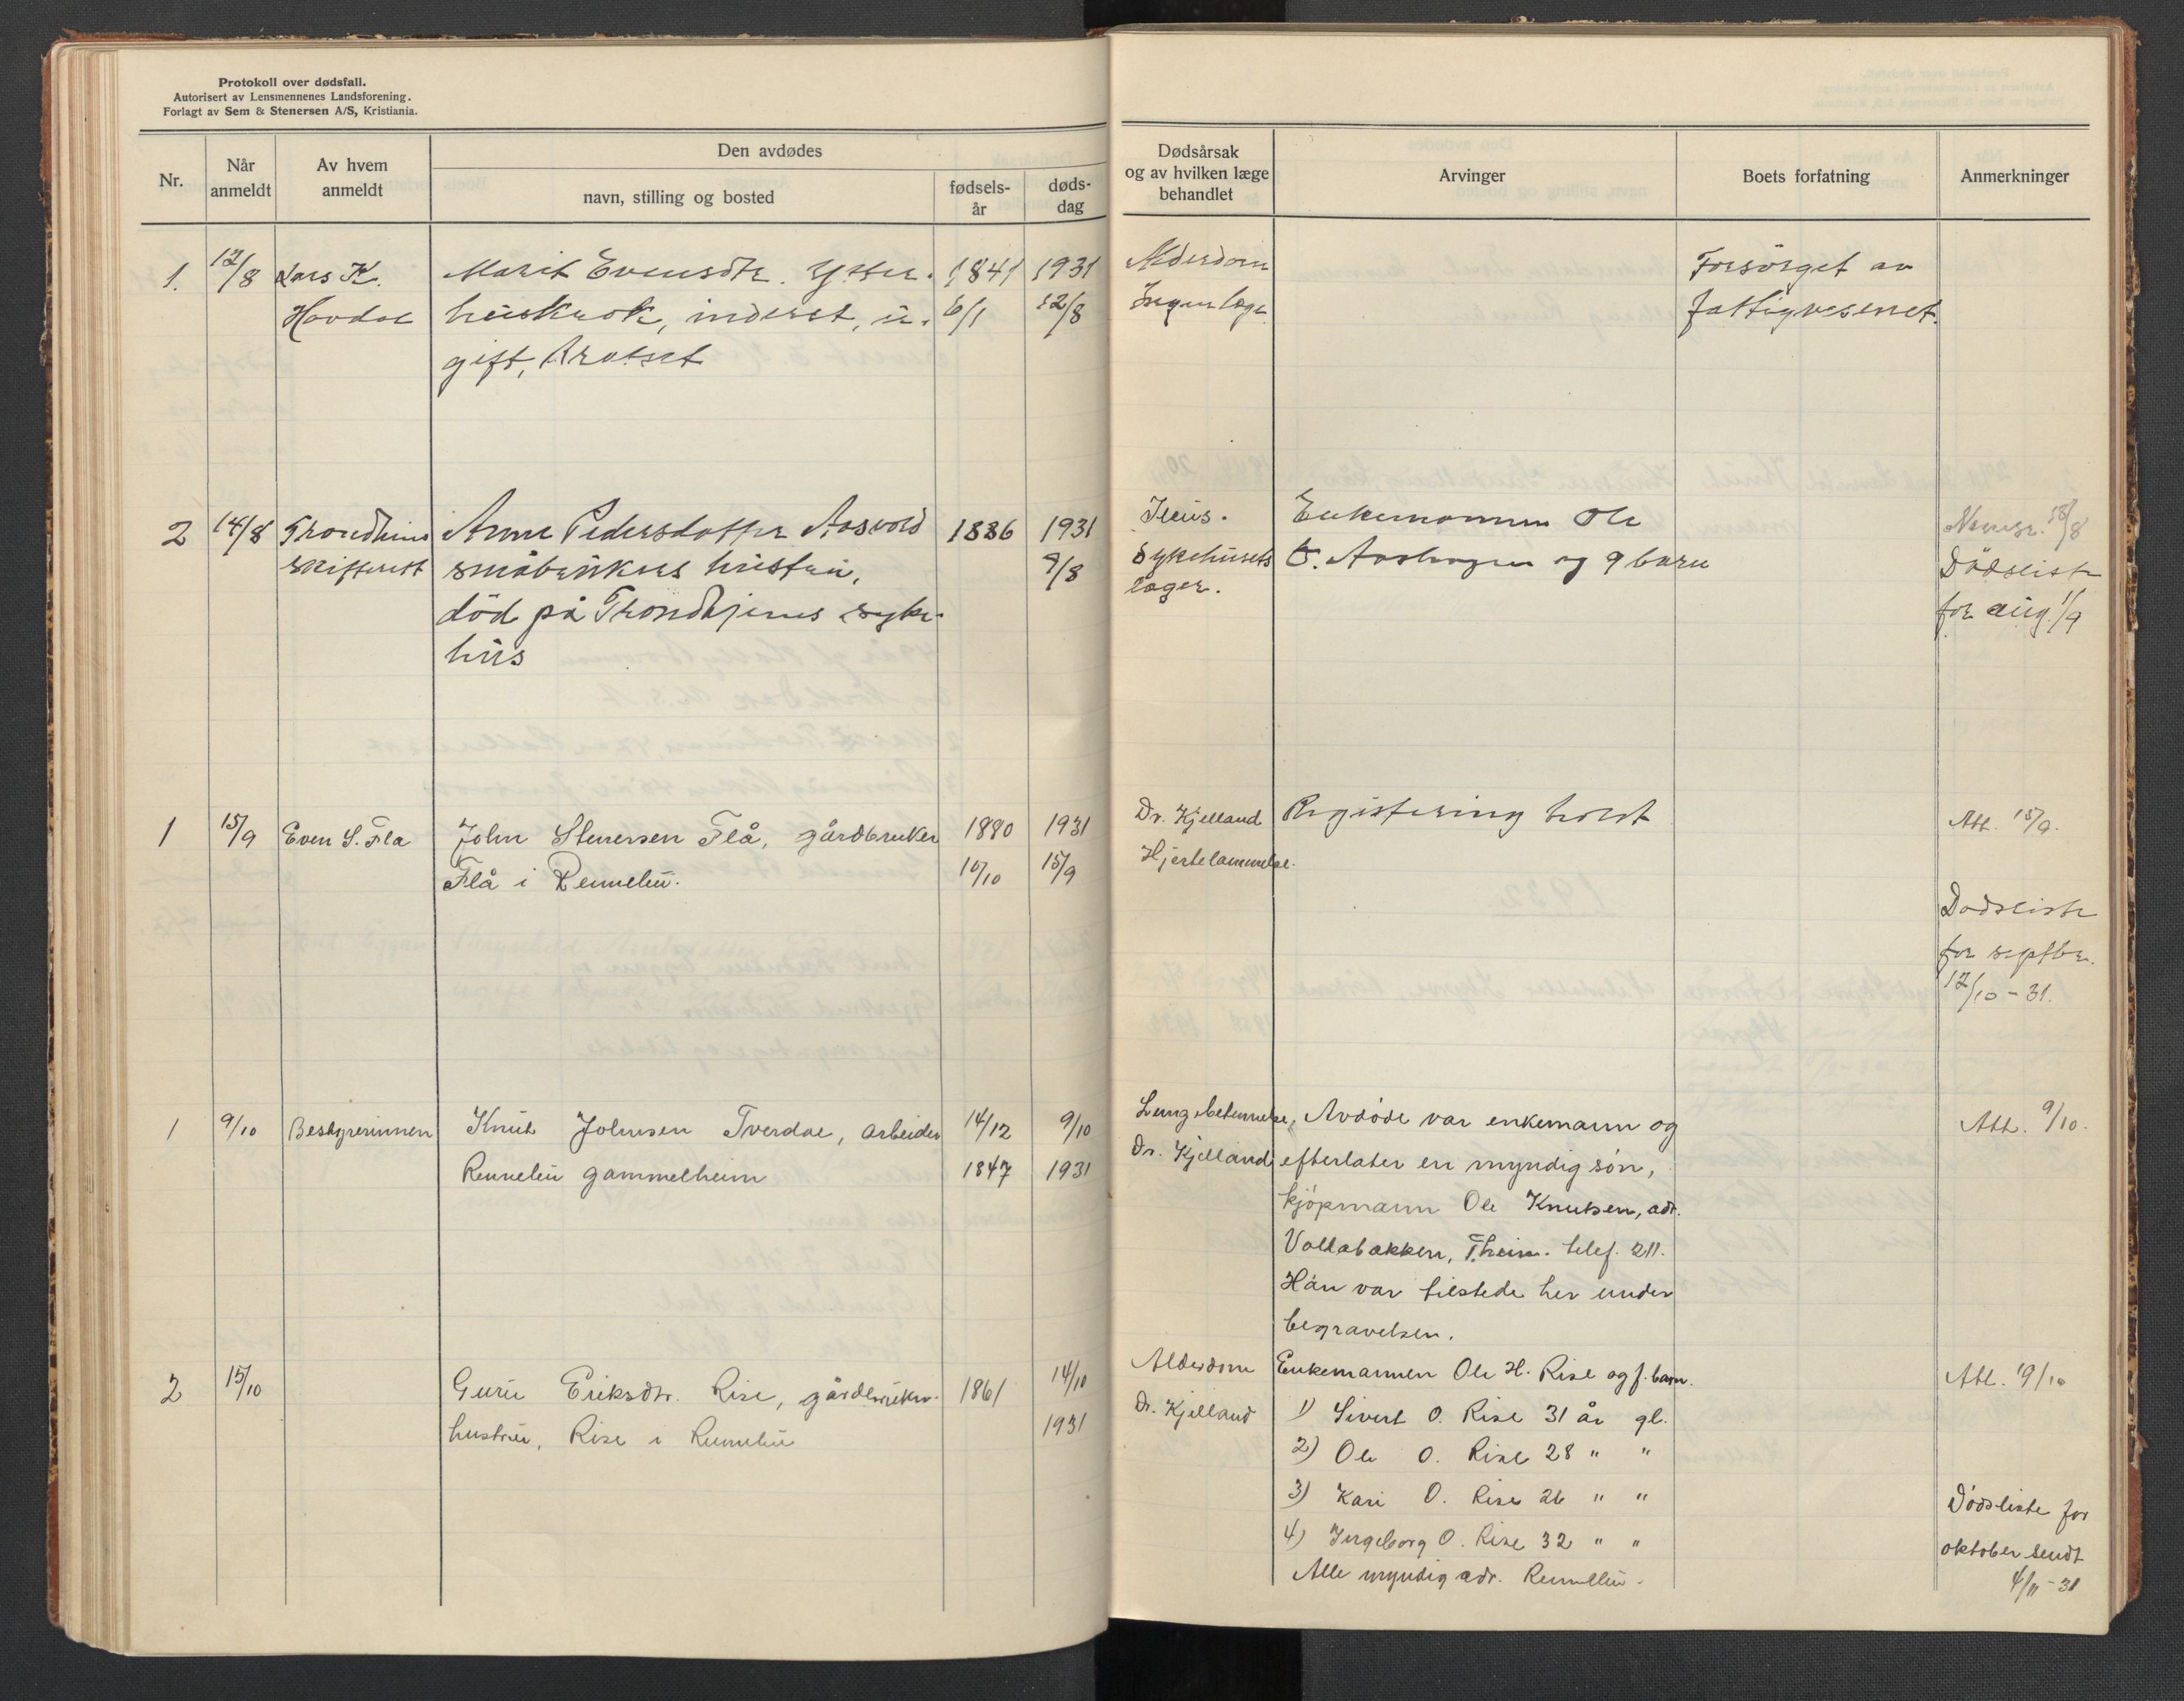 Protokoll over dødsfall.
Autorisert av Lensmennenes Landsforening.
Forlagt av Sem & Stenersen A/S, Kristiania.
Nr.
Når anmeldt
Av hvem anmeldt
Den avdødes
navn, stilling og bosted
fødsels-år
døds-dag
Dødsårsak og av hvilken læge behandlet
Arvinger
Boets forfatning
Anmerkninger
1. 12/8 Lars K. Marit Evensdtr. Ytter- 1841 1931 Alderdom Forsörget av
Havdal huskrok, inderst, u- 6/1 12/8 Ingen læge fattigvesenet.
gift,
2 14/8 Trondheim Anne Pedersdatter Aasvold 1886 1931 Ileus. Enkemannen Ole
skifterett småbrukers hustru, 9/8 Sykehusets og 9 barn 18/8
död på Trondhjems syke- læger. Dødsliste
hus for aug. 1/9
1 15/9 Even S. Flå John Stenersen Flå, gårdbruker 1880 1931 Dr. Kjelland Registering holdt Att. 15/9.
Flå i Rennebu. 10/10 15/9 Hjertelammelse.
Dødsliste
for septbr.
12/10-31.
1 9/10 Bestyrerinnen Knut Johnsen Tverdal, arbeider 14/12 9/10 Lungebetennelse, Avdöde var enkemann og Att. 9/10.
Rennebu gammelheim 1847 1931 Dr. Kjelland efterlater en myndig sön,
kjöpmann Ole Knutsen, adr.
Vollabakken, Theim. telef. 211.
Han var tilstede her under
begravelsen.
2 15/10 Guru Eriksdtr. Rise, gårdbruker- 1861 14/10 Alderdom Enkemannen Ole H. Rise og f. barn. Att. 19/10
hustru, Rise i Rennebu 1931 Dr. Kjelland 1) Sivert O. Rise 31 år gl.
2) Ole O. Rise 28 " "
3) Kari O. Rise 26 " " Dödsliste for
4) Ingeborg O. Rise 32 " " oktober sendt
Alle myndig adr. Rennebu. 4/11-31